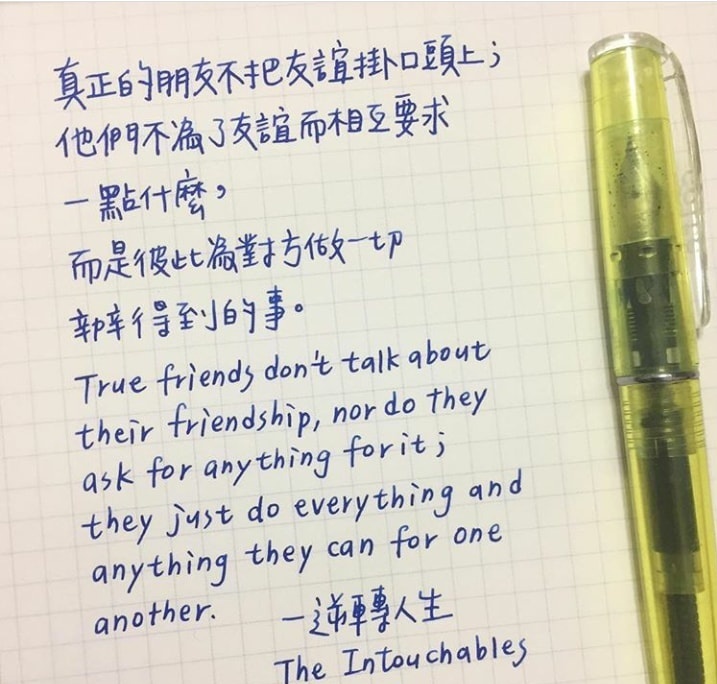 真正的朋友不把友誼掛口頭上；
他們不為了友誼而相互要求
一點什麼，
而是彼此為對方做一切
辦得到的事。
True friends don't talk about
their friendship, nor do they
ask for anything for it;
they just do everything and
anything they can for one
another.
—逆轉人生
The Intouchables